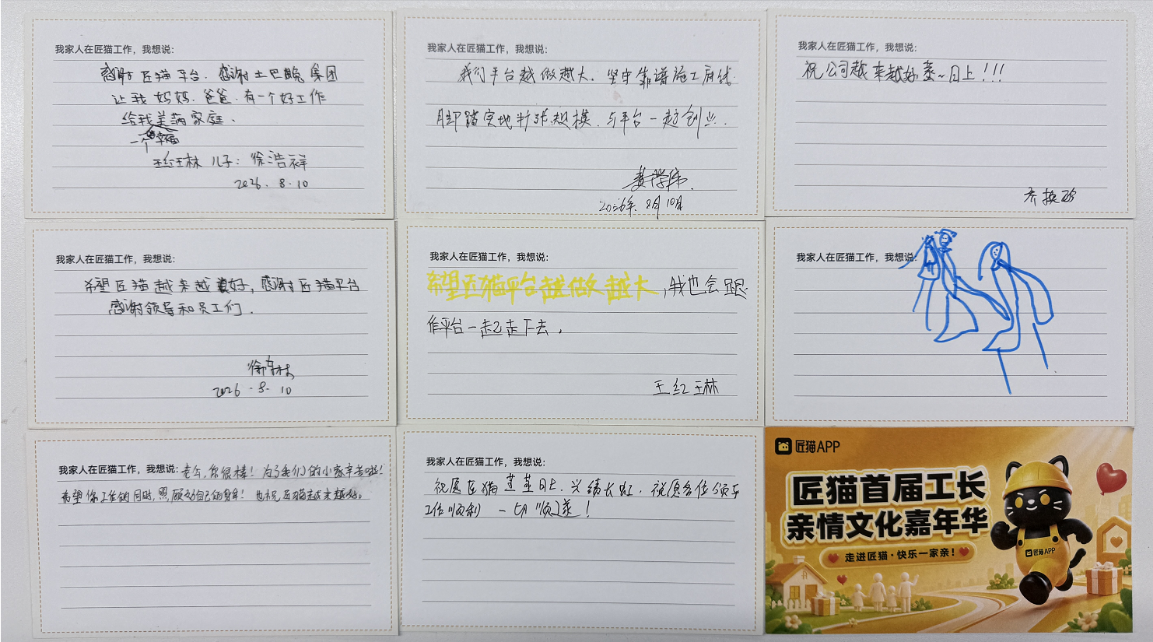 我家人在匠猫工作，我想说：
感谢匠猫平台．感谢土巴兔集团
让我妈妈．爸爸．有一个好工作
给我美满家庭．
一个幸福
王红林 儿子：徐浩祥
2026．8．10
我家人在匠猫工作，我想说：
我们平台越做越大。坚守靠谱施工底线
脚踏实地扩张规模．与平台一起创业．
2026年．8月10日
我家人在匠猫工作，我想说：
祝公司越来越好蒸~日上！！！
我家人在匠猫工作，我想说：
希望匠猫越来越好，感谢匠猫平台
感谢领导和员工们．
2026．8．10
我家人在匠猫工作，我想说：
希望匠猫平台越做越大，我也会跟
作平台一起走下去，
王红林
我家人在匠猫工作，我想说：
我家人在匠猫工作，我想说：老公，你很棒！为了我们的小家辛苦啦！
希望你工作的同时，照顾好自己的身体！也祝匠猫越来越好。
我家人在匠猫工作，我想说：
祝愿匠猫蒸蒸日上．业绩长虹．祝愿各位领导
工作顺利 一切顺遂！
匠猫APP
匠猫首届工长
亲情文化嘉年华
走进匠猫·快乐一家亲！
匠猫APP